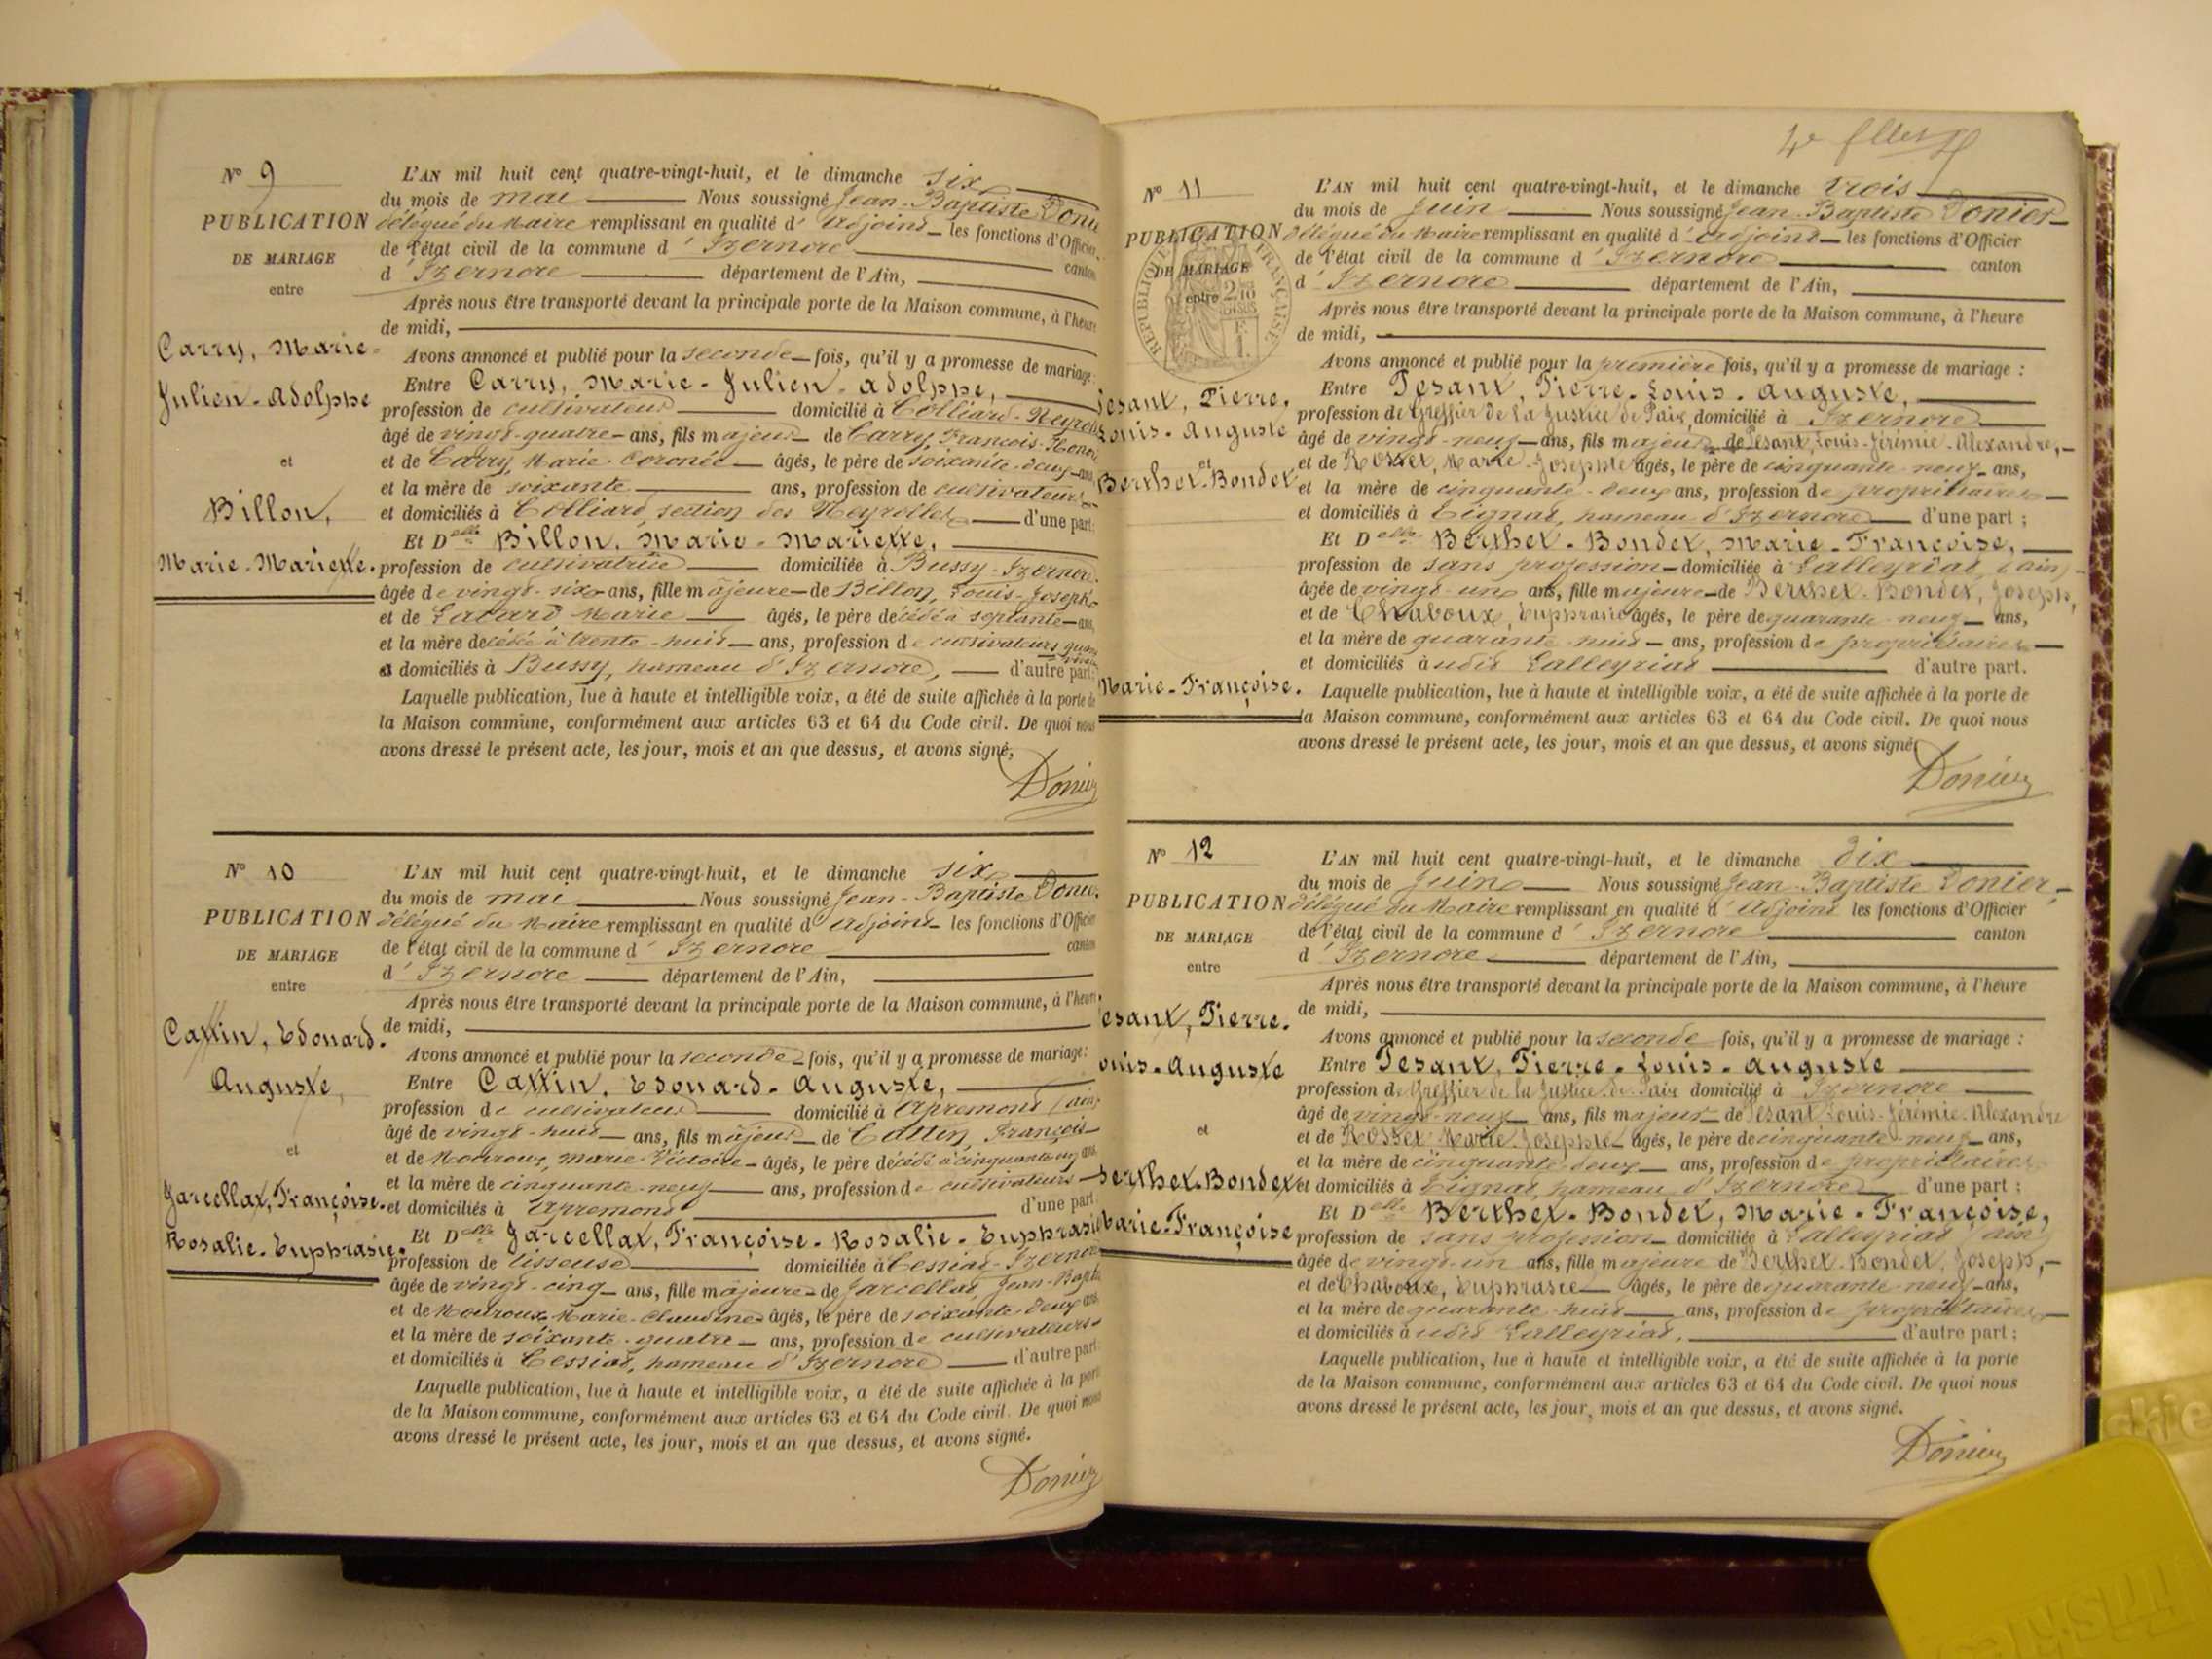 N° 9
PUBLICATION
DE MARIAGE
entre
Carry, Marie-
Julien-Adolphe
et
Billon,
Marie-Mariette.
L'AN mil huit cent quatre-vingt-huit, et le dimanche six
du mois de mai Nous soussigné Jean-Baptiste Donie
délégué du Maire remplissant en qualité d'Adjoint les fonctions d'Officier
de l'état civil de la commune d'Izernore canton
d'Izernore département de l'Ain,
Après nous être transporté devant la principale porte de la Maison commune, à l'heure
de midi,
Avons annoncé et publié pour la seconde fois, qu'il y a promesse de mariage:
Entre Carry, Marie-Julien-Adolphe,
profession de cultivateur domicilié à Colliard-Neyrolles
âgé de vingt-quatre ans, fils majeur de Carry, François-Honoré
et de Carry, Marie-Coronée âgés, le père de soixante-deux ans,
et la mère de soixante ans, profession de cultivateurs
et domiciliés à Colliard, section des Neyrolles d'une part;
Et Delle Billon, Marie-Mariette,
profession de cultivatrice domiciliée à Bussy-Izernore.
âgée de vingt-six ans, fille majeure de Billon, Louis-Joseph
et de Marie âgés, le père décédé à septante ans,
et la mère décédée à trente-huit ans, profession de cultivateurs quand
domiciliés à Bussy, hameau d'Izernore, d'autre part;
Laquelle publication, lue à haute et intelligible voix, a été de suite affichée à la porte de
la Maison commune, conformément aux articles 63 et 64 du Code civil. De quoi nous
avons dressé le présent acte, les jour, mois et an que dessus, et avons signé,
Donier
N° 10
PUBLICATION
DE MARIAGE
entre
Cattin, Edouard-
Auguste,
et
Jarcellat, Françoise-
Rosalie-Euphrasie.
L'AN mil huit cent quatre-vingt-huit, et le dimanche six
du mois de mai Nous soussigné Jean-Baptiste Donie
délégué du Maire remplissant en qualité d'Adjoint les fonctions d'Officier
de l'état civil de la commune d'Izernore canton
d'Izernore département de l'Ain,
Après nous être transporté devant la principale porte de la Maison commune, à l'heure
de midi,
Avons annoncé et publié pour la seconde fois, qu'il y a promesse de mariage:
Entre Cattin, Edouard-Auguste,
profession de cultivateur domicilié à Apremont (ain)
âgé de vingt-huit ans, fils majeur de Cattin, François
et de Mouroux, Marie-Victoire âgés, le père décédé à cinquante un ans
et la mère de cinquante-neuf ans, profession de cultivateurs
et domiciliés à Apremont d'une part
Et Delle Jarcellat, Françoise-Rosalie-Euphrasie
profession de tisseuse domiciliée à Cessiat-Izernore
âgée de vingt-cinq ans, fille majeure de Jarcellat, Jean-Baptis
et de Mouroux, Marie-Claudine âgés, le père de soixante-deux ans
et la mère de soixante-quatre ans, profession de cultivateurs
et domiciliés à Cessiat, hameau d'Izernore d'autre part
Laquelle publication, lue à haute et intelligible voix, a été de suite affichée à la porte
de la Maison commune, conformément aux articles 63 et 64 du Code civil. De quoi nous
avons dressé le présent acte, les jour, mois et an que dessus, et avons signé.
Donier
N° 11
PUBLICATION
DE MARIAGE
entre
RÉPUBLIQUE FRANÇAISE
Tesant, Pierre-
Louis-Auguste
et
Berthet-Bondet
Marie-Françoise.
L'AN mil huit cent quatre-vingt-huit, et le dimanche trois
du mois de Juin Nous soussigné Jean-Baptiste Donier
délégué du Maire remplissant en qualité d'Adjoint les fonctions d'Officier
de l'état civil de la commune d'Izernore canton
d'Izernore département de l'Ain,
Après nous être transporté devant la principale porte de la Maison commune, à l'heure
de midi,
Avons annoncé et publié pour la première fois, qu'il y a promesse de mariage :
Entre Tesant, Pierre-Louis-Auguste,
profession de Greffier de la Justice de Paix domicilié à Izernore
âgé de vingt-neuf ans, fils majeur de Tesant, Louis-Jérémie-Alexandre,
et de Rosset, Marie-Josephte âgés, le père de cinquante-neuf ans,
et la mère de cinquante-deux ans, profession de propriétaires
et domiciliés à Tignat, hameau d'Izernore d'une part ;
Et Delle Berthet-Bondet, Marie-Françoise,
profession de sans profession domiciliée à Lalleyriat, (ain)
âgée de vingt-un ans, fille majeure de Berthet-Bondet, Joseph,
et de Chaboux, Euphrasie âgés, le père de quarante-neuf ans,
et la mère de quarante-huit ans, profession de propriétaires
et domiciliés à udit Lalleyriat d'autre part.
Laquelle publication, lue à haute et intelligible voix, a été de suite affichée à la porte de
la Maison commune, conformément aux articles 63 et 64 du Code civil. De quoi nous
avons dressé le présent acte, les jour, mois et an que dessus, et avons signé
Donier
N° 12
PUBLICATION
DE MARIAGE
entre
esant, Pierre-
ouis-Auguste
et
Berthet-Bondet
Marie-Françoise
L'AN mil huit cent quatre-vingt-huit, et le dimanche dix
du mois de Juin Nous soussigné Jean-Baptiste Donier,
délégué du Maire remplissant en qualité d'Adjoint les fonctions d'Officier
de l'état civil de la commune d'Izernore canton
d'Izernore département de l'Ain,
Après nous être transporté devant la principale porte de la Maison commune, à l'heure
de midi,
Avons annoncé et publié pour la seconde fois, qu'il y a promesse de mariage :
Entre Tesant, Pierre-Louis-Auguste
profession de Greffier de la Justice de Paix domicilié à Izernore
âgé de vingt-neuf ans, fils majeur de Tesant Louis-Jérémie-Alexandre
et de Rosset Marie-Josephte âgés, le père de cinquante-neuf ans,
et la mère de cinquante-deux ans, profession de propriétaires
et domiciliés à Tignat, hameau d'Izernore d'une part ;
Et Delle Berthet-Bondet, Marie-Françoise,
profession de sans profession domiciliée à Lalleyriat (ain)
âgée de vingt-un ans, fille majeure de Berthet-Bondet, Joseph,
et de Chaboux, Euphrasie âgés, le père de quarante-neuf ans,
et la mère de quarante-huit ans, profession de propriétaires,
et domiciliés à udit Lalleyriat, d'autre part ;
Laquelle publication, lue à haute et intelligible voix, a été de suite affichée à la porte
de la Maison commune, conformément aux articles 63 et 64 du Code civil. De quoi nous
avons dressé le présent acte, les jour, mois et an que dessus, et avons signé.
Donier